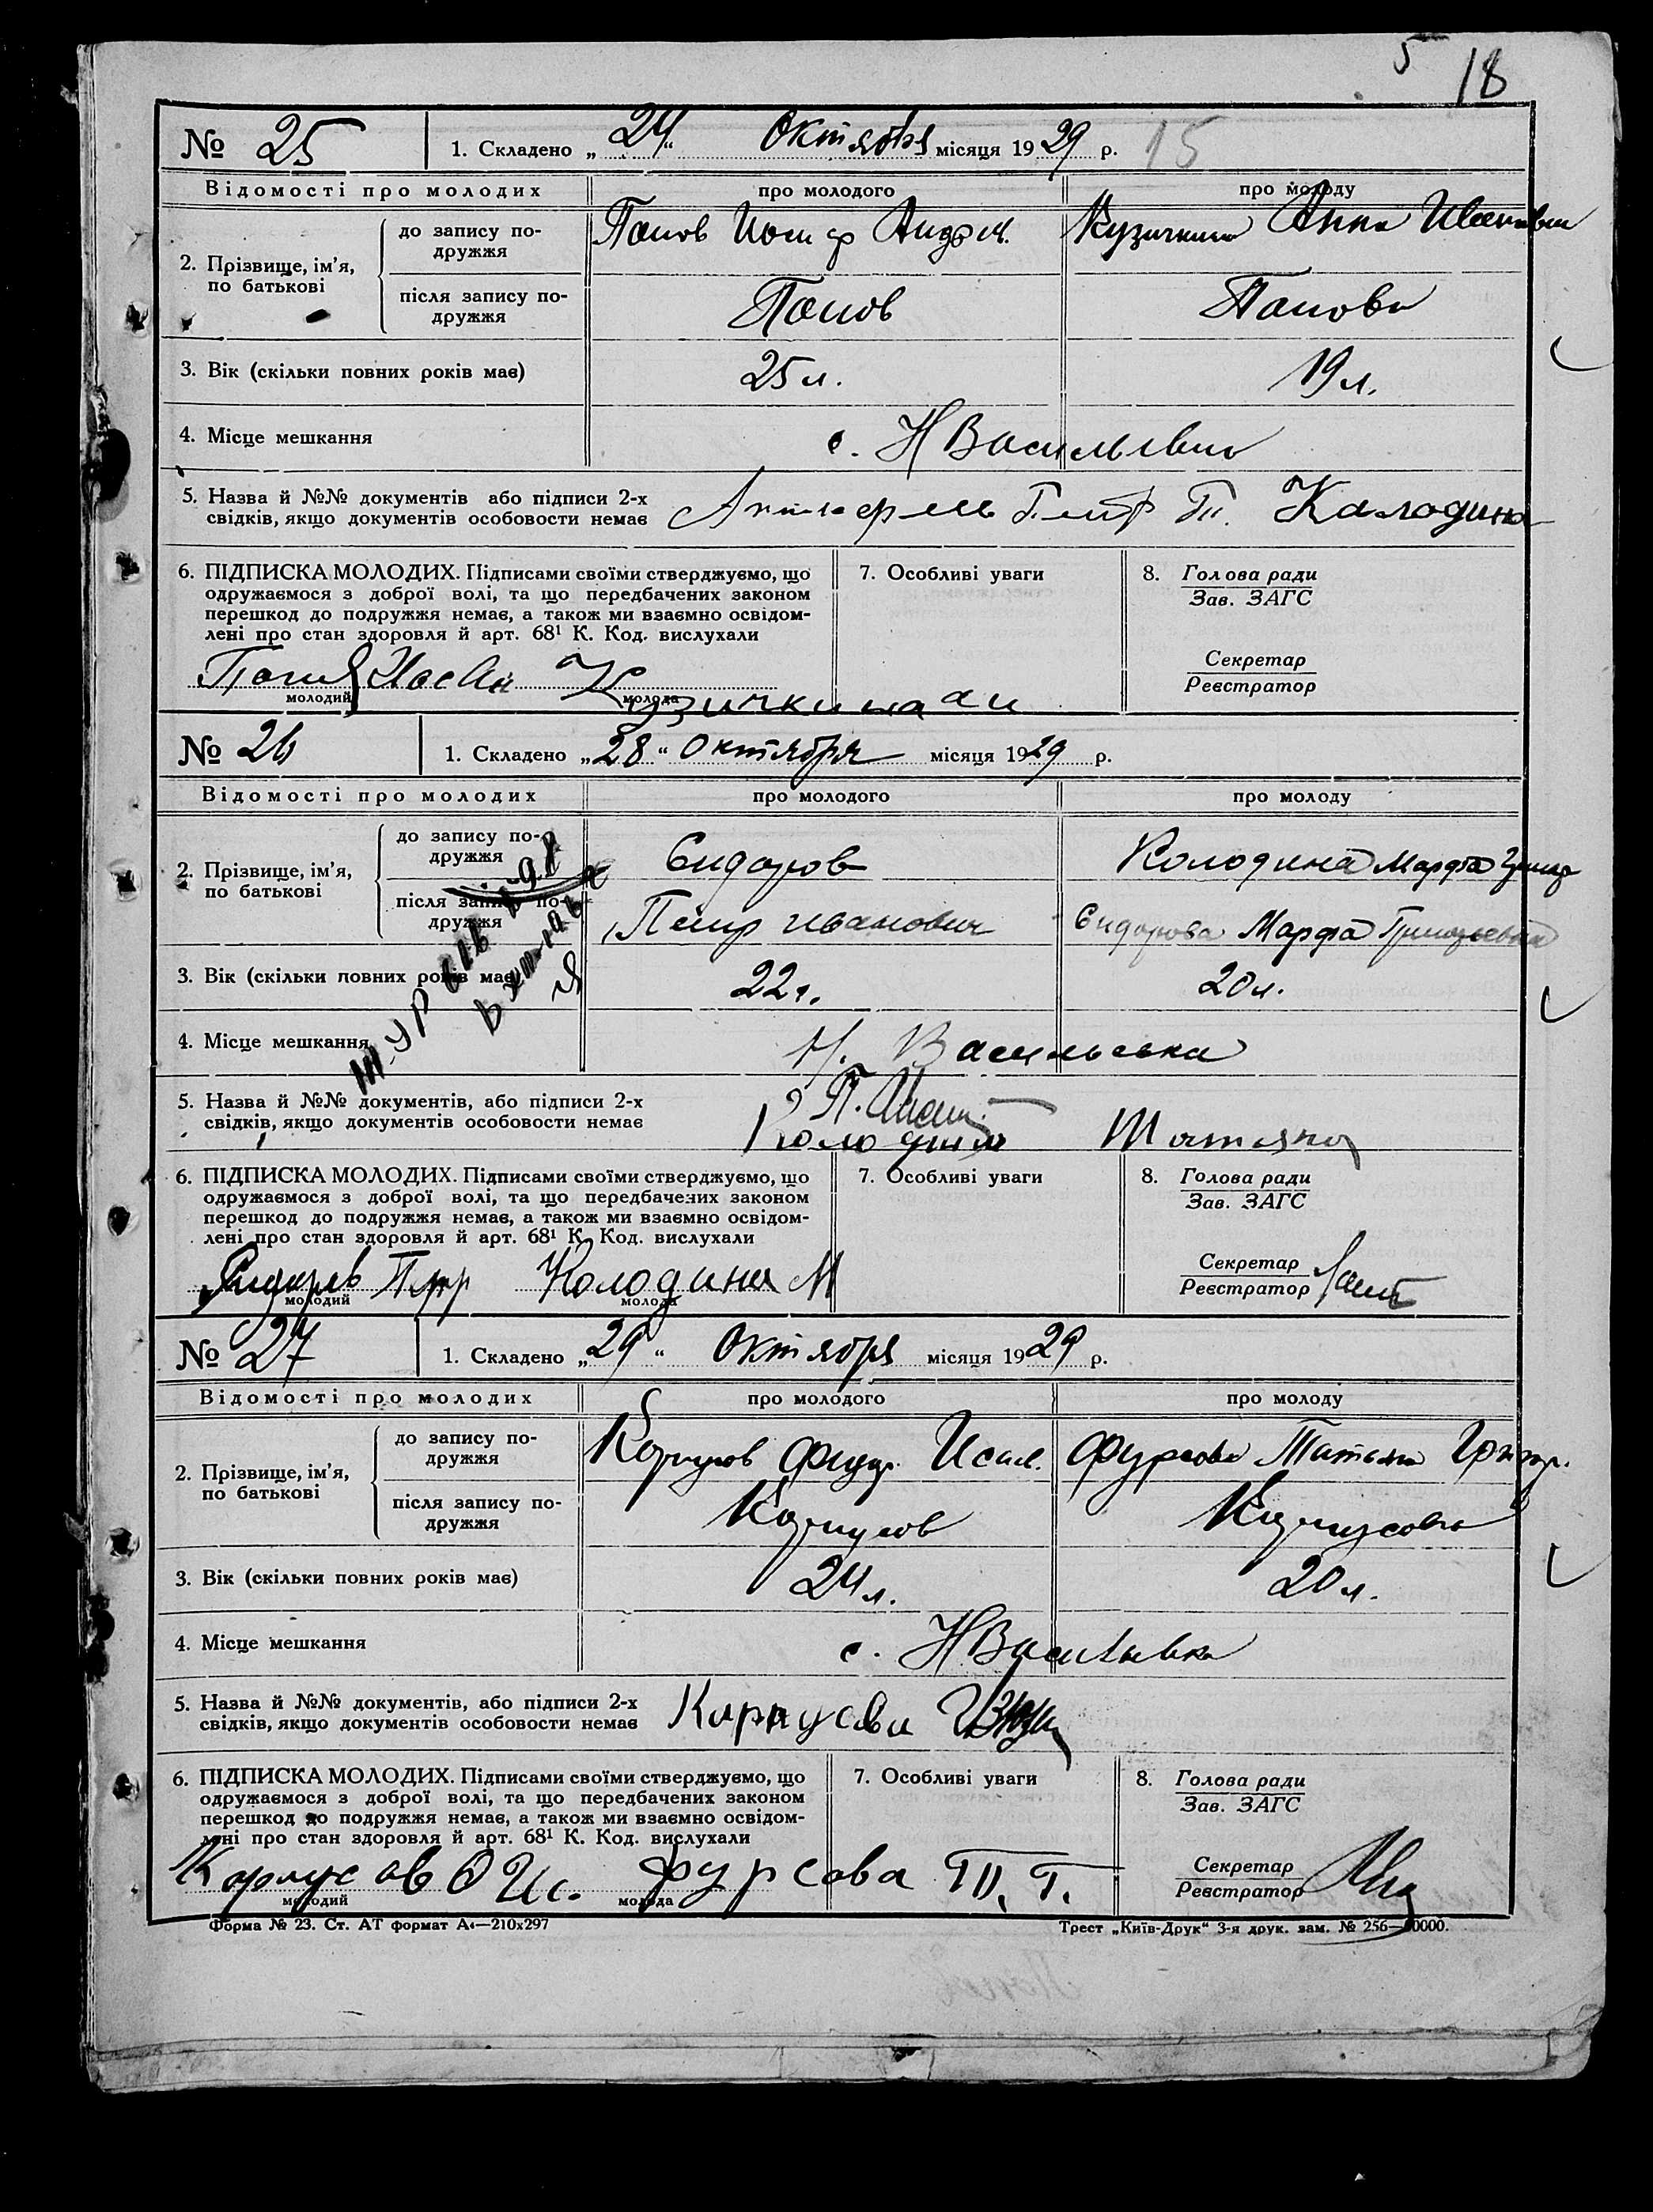 5 18
№ 25 1. Складено „24“ Октября місяця 1929 р. 15
Відомості про молодих про молодого про молоду
2. Прізвище, ім’я, по батькові
до запису подружжя Попов Иосиф Андр. Кузичкина Анна Ивановна
після запису подружжя Попов Попова
3. Вік (скільки повних років має) 25 л. 19 л.
4. Місце мешкання с. Н Васильевка
5. Назва й №№ документів або підписи 2-х
свідків, якщо документів особовости немає Колодина
6. ПІДПИСКА МОЛОДИХ. Підписами своїми стверджуємо, що
одружаємося з доброї волі, та що передбачених законом
перешкод до подружжя немає, а також ми взаємно освідом-
лені про стан здоровля й арт. 68¹ К. Код. вислухали
7. Особливі уваги
8. Голова ради
Зав. ЗАГС
Секретар
Реєстратор
Кузичкина
молодий молода
№ 26 1. Складено „28“ Октября місяця 1929 р.
Відомості про молодих про молодого про молоду
2. Прізвище, ім’я, по батькові
до запису подружжя Сидоров Колодина Марфа
після запису подружжя Петр Иванович Сидорова Марфа Григорьевна
3. Вік (скільки повних років має) 22 20 л.
4. Місце мешкання Н. Васильевка
5. Назва й №№ документів, або підписи 2-х
свідків, якщо документів особовости немає Колодина Татьяна
6. ПІДПИСКА МОЛОДИХ. Підписами своїми стверджуємо, що
одружаємося з доброї волі, та що передбачених законом
перешкод до подружжя немає, а також ми взаємно освідом-
лені про стан здоровля й арт. 68¹ К. Код. вислухали
7. Особливі уваги
8. Голова ради
Зав. ЗАГС
Секретар
Реєстратор
Сидоров Петр Колодина М
молодий молода
№ 27 1. Складено „29“ Октября місяця 1929 р.
Відомості про молодих про молодого про молоду
2. Прізвище, ім’я, по батькові
до запису подружжя Корпусов Исал. Фурсова Татьяна Григор.
після запису подружжя Корпусов Корпусова
3. Вік (скільки повних років має) 24 л. 20 л.
4. Місце мешкання с. Н Васильевка
5. Назва й №№ документів, або підписи 2-х
свідків, якщо документів особовости немає Карпусова
6. ПІДПИСКА МОЛОДИХ. Підписами своїми стверджуємо, що
одружаємося з доброї волі, та що передбачених законом
перешкод до подружжя немає, а також ми взаємно освідом-
лені про стан здоровля й арт. 68¹ К. Код. вислухали
7. Особливі уваги
8. Голова ради
Зав. ЗАГС
Секретар
Реєстратор
Корпусов Ф Ис. Фурсова Т. Г.
молодий молода
Форма № 23. Ст. АТ формат А₄—210х297 Трест „Київ-Друк“ 3-я друк. зам. № 256—